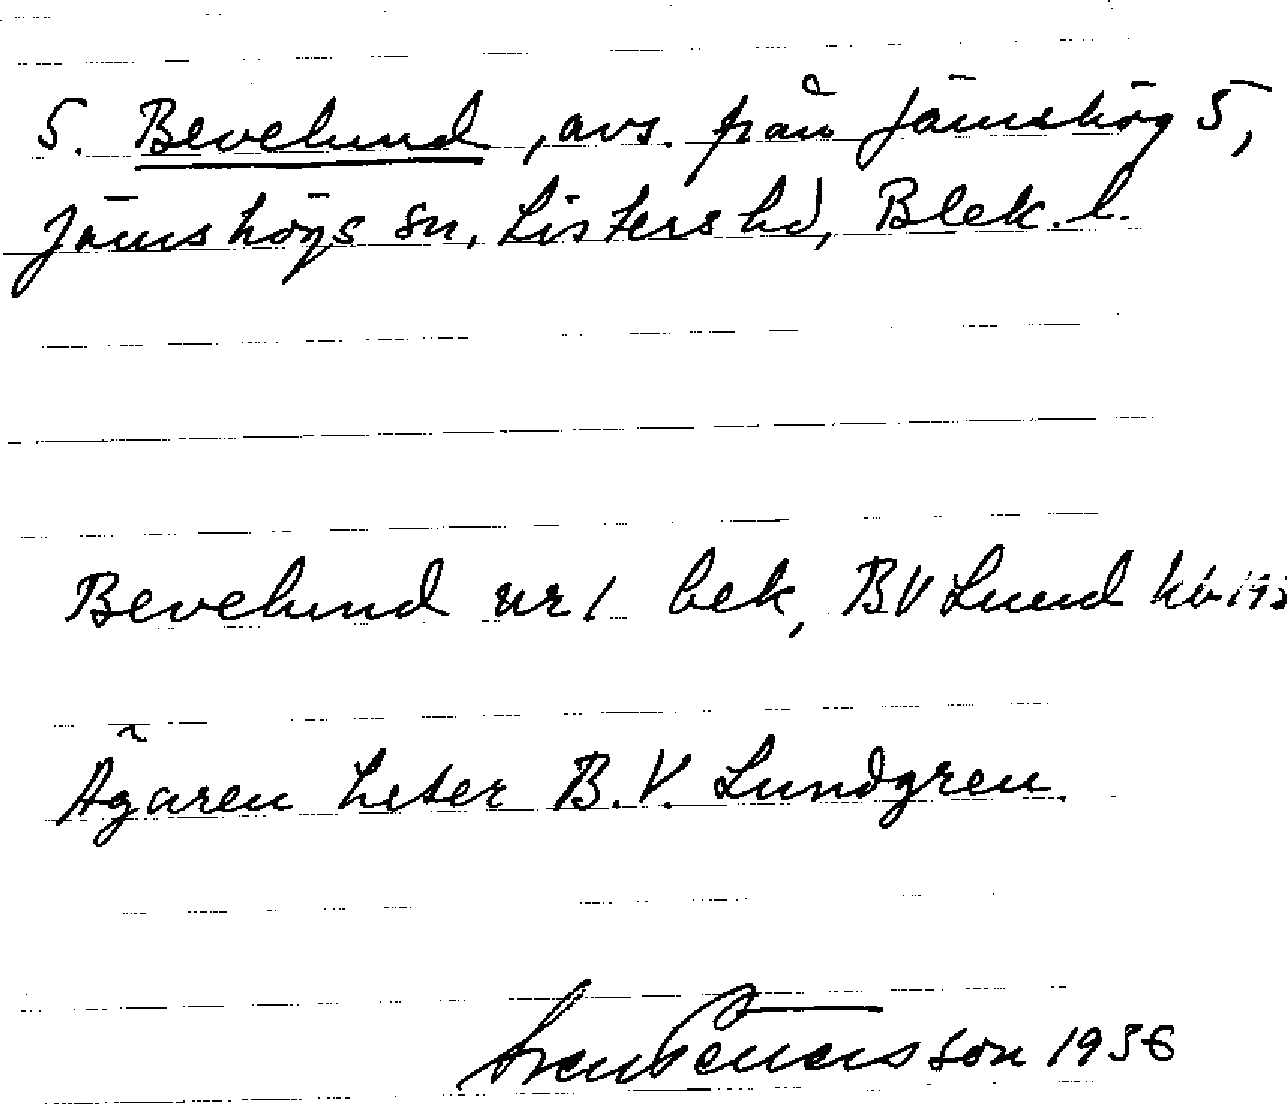 5. Bevelund, avs. från Jämshög 5,
Jämshögs sn, Listers hd, Blek. l.
Bevelund nr 1 bek, BV Lund
Ägaren heter B.V. Lundgren.
1956